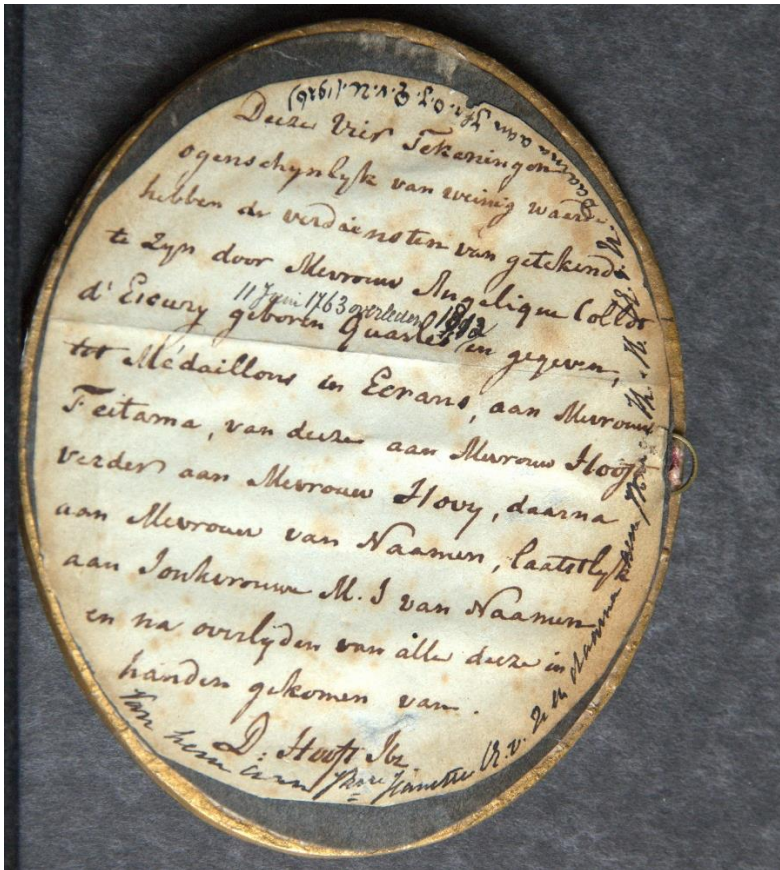 Deeze Vier Tekeningen
ogenschynlyk van weinig waarde
hebben de verdiensten van getekend
te Zyn door Mevrouw Angelique Collot
d'Escury geboren Quarles en gegeven,
11 Juni 1763 overleden
tot Médaillons in Ecrans, aan Mevrouw
Feitama, van deeze aan Mevrouw Hooft
verder aan Mevrouw Hovy, daarna
aan Mevrouw van Naamen, laatstlyk
aan Jonkvrouwe M. J van Naamen
en na overlyden van alle deeze in
handen gekomen van.
D: Hooft Jbz.
Van hem aan Jkvre Jeanette v.
en daarna aan
daarna aan Jhr. O. J. (1926)